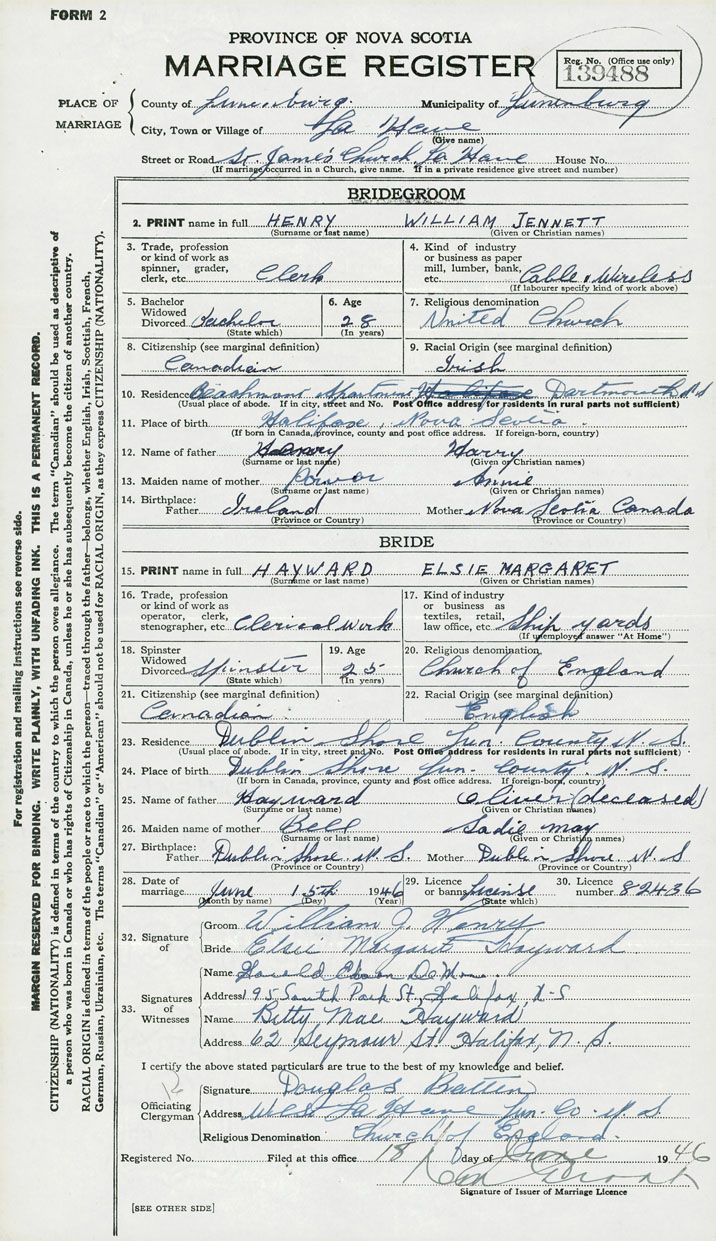 FORM 2
PROVINCE OF NOVA SCOTIA
MARRIAGE REGISTER
Reg. No. (Office use only)
139488
PLACE OF MARRIAGE
County of Lunenburg Municipality of Lunenburg
City, Town or Village of La Have
(Give name)
Street or Road St. James Church, La Have House No.
(If marriage occurred in a Church, give name. If in a private residence give street and number)
BRIDEGROOM
2. PRINT name in full HENRY WILLIAM JENNETT
(Surname or last name) (Given or Christian names)
3. Trade, profession or kind of work as spinner, grader, clerk, etc. Clerk
4. Kind of industry or business as paper mill, lumber, bank, etc. Cable & Wireless
(If labourer specify kind of work above)
5. Bachelor Widowed Divorced Bachelor
(State which)
6. Age 28
(In years)
7. Religious denomination
United Church
8. Citizenship (see marginal definition)
Canadian
9. Racial Origin (see marginal definition)
Irish
10. Residence Halifax Dartmouth N S
(Usual place of abode. If in city, street and No. Post Office address for residents in rural parts not sufficient)
11. Place of birth Halifax, Nova Scotia.
(If born in Canada, province, county and post office address. If foreign-born, country)
12. Name of father Henry Harry
(Surname or last name) (Given or Christian names)
13. Maiden name of mother Power Annie
(Surname or last name) (Given or Christian names)
14. Birthplace:
Father Ireland Mother Nova Scotia Canada
(Province or Country) (Province or Country)
BRIDE
15. PRINT name in full HAYWARD ELSIE MARGARET
(Surname or last name) (Given or Christian names)
16. Trade, profession or kind of work as operator, clerk, stenographer, etc. Clerical Work
17. Kind of industry or business as textiles, retail, law office, etc. Ship yards
(If unemployed answer "At Home")
18. Spinster Widowed Divorced Spinster
(State which)
19. Age 25
(In years)
20. Religious denomination
Church of England
21. Citizenship (see marginal definition)
Canadian
22. Racial Origin (see marginal definition)
English
23. Residence Dublin Shore Lun. County N. S.
(Usual place of abode. If in city, street and No. Post Office address for residents in rural parts not sufficient)
24. Place of birth Dublin Shore Lun. County. N. S.
(If born in Canada, province, county and post office address. If foreign-born, country)
25. Name of father Hayward Oliver (deceased)
(Surname or last name) (Given or Christian names)
26. Maiden name of mother Bell Sadie May
(Surname or last name) (Given or Christian names)
27. Birthplace:
Father Dublin Shore. N. S. Mother Dublin Shore. N. S
(Province or Country) (Province or Country)
28. Date of marriage June 15th 1946
(Month by name) (Day) (Year)
29. Licence or banns License
(State which)
30. Licence number 82436
32. Signature of
Groom William J. Henry
Bride Elsie Margaret Hayward
33. Signatures of Witnesses
Name Harold
Address 195 South Park St. Halifax, N-S
Name Betty Mae Hayward
Address 62 Seymour St. Halifax, N. S.
I certify the above stated particulars are true to the best of my knowledge and belief.
Officiating Clergyman
Signature Douglas Batten
Address West La Have Lun. Co. N. S.
Religious Denomination Church of England.
Registered No. Filed at this office 18 day of June 1946
Signature of Issuer of Marriage Licence
[SEE OTHER SIDE]
For registration and mailing instructions see reverse side.
MARGIN RESERVED FOR BINDING. WRITE PLAINLY, WITH UNFADING INK. THIS IS A PERMANENT RECORD.
CITIZENSHIP (NATIONALITY) is defined in terms of the country to which the person owes allegiance. The term "Canadian" should be used as descriptive of
a person who was born in Canada or who has rights of Citizenship in Canada, unless he or she has subsequently become the citizen of another country.
RACIAL ORIGIN is defined in terms of the people or race to which the person—traced through the father—belongs, whether English, Irish, Scottish, French,
German, Russian, Ukrainian, etc. The terms "Canadian" or "American" should not be used for RACIAL ORIGIN, as they express CITIZENSHIP (NATIONALITY).